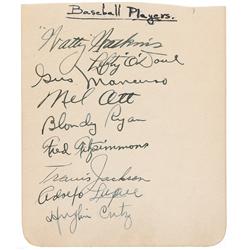 Baseball Players.
"Watty" Watkins
Lefty O'Doul
Gus Mancuso
Mel Ott
Blondy Ryan
Fred Fitzsimmons
Travis Jackson
Adolfo Luque
Hughie Critz